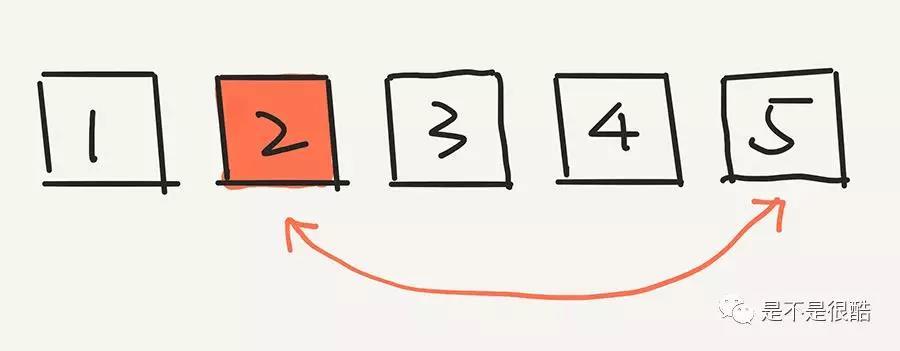 1 2 3 4 5
是不是很酷